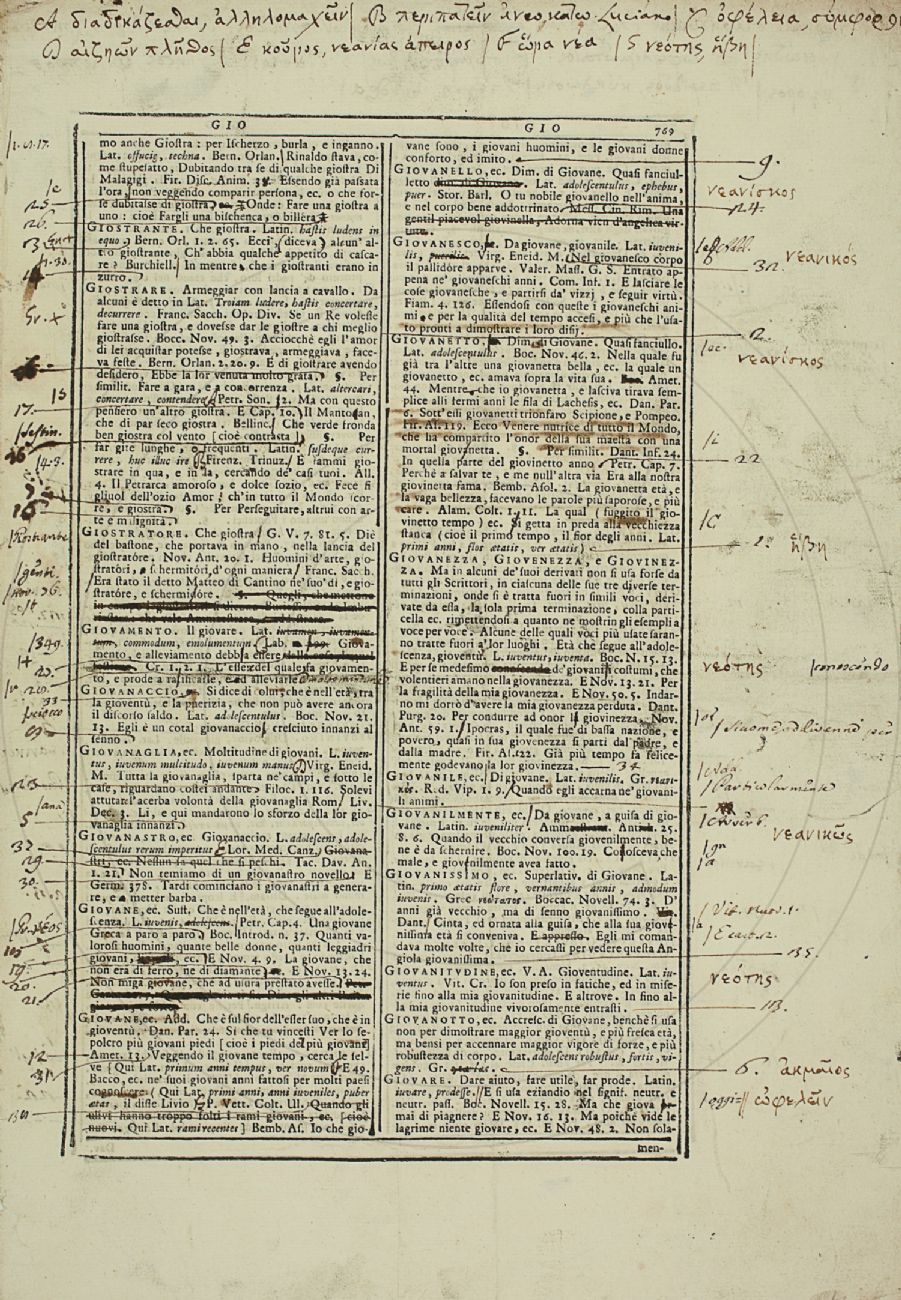 Α διαδικάζεσθαι, ἀλληλομαχεῖν | Β περιπατεῖν ἄνω, κάτω Luciano | C ὀφέλεια, σύμφορ
D αἰζηῶν πλῆθος | E κοῦρος, νεανίας ἄπειρος | F ὥρα νέα | G νεότης, ἥβη
GIO GIO 769
mo anche Giostra: per Ischerzo, burla, e inganno.
Lat. offucia, techna. Bern. Orlan. Rinaldo stava, co-
me stupefatto, Dubitando tra se di qualche giostra Di
Malagigi. Fir. Disc. Anim. Essendo già passata
l'ora, non veggendo comparir persona, ec. o che fos-
se dubitasse di giostra, Onde: Fare una giostra a
uno: cioè Fargli una bischenca, o billera
GIOSTRANTE. Che giostra. Latin. hastis ludens in
equo. Bern. Orl. 1. 2. 65. Ecci, diceva, alcun' al-
tro giostrante, Ch'abbia qualche appetito di casca-
re? Burchiell. In mentre, che i giostranti erano in
zurro.
GIOSTRARE. Armeggiar con lancia a cavallo. Da
alcuni è detto in Lat. Troiam ludere, hastis concertare,
decurrere. Franc. Sacch. Op. Div. Se un Re volesse
fare una giostra, e dovesse dar le giostre a chi meglio
giostrasse. Bocc. Nov. 49. 3. Acciocchè egli l'amor
di lei acquistar potesse, giostrava, armeggiava, face-
va feste. Bern. Orl. 2. 20. 9. E di giostrare avendo
desidero, Ebbe la lor venuta molto grata. §. Per
similit. Fare a gara, e a concorrenza. Lat. altercari,
concertare, contendere. Petr. Son. 12. Ma con questo
pensiero un'altro giostra. E Cap. 10. Il Mantovan,
che di par seco giostra. Bellinc. Che verde fronda
ben giostra col vento [cioè contrasta]. §. Per
far gite lunghe, o frequenti. Latin. susdeque cur-
rere, huc illuc ire. Firenz. Trinuz. E fammi gio-
strare in qua, e in là, cercando de' casi tuoi. All.
4. Il Petrarca amoroso, e dolce sozio, ec. Fece sì
gliuol dell'ozio Amor, ch'in tutto il Mondo scor-
re, e giostra. §. Per Perseguitare, altrui con ar-
te e malignità.
GIOSTRATORE. Che giostra. G. V. 7. 81. 5. Diè
del bastone, che portava in mano, nella lancia del
giostratore. Nov. Ant. 20. 1. Huomini d'arte, gio-
stratori, schermitori, d'ogni maniera. Franc. Sacch.
Era stato il detto Matteo di Cantino ne' suo' dì, e gio-
stratore, e schermidore.
GIOVAMENTO. Il giovare. Lat.
commodum, emolumentum. Lab. Giova-
mento, e alleviamento debba essere
Cr. 1. 2. 1. L'essez del quale sa giovamen-
to, e prode a rassificarle, ed alleviarle
GIOVANACCIO, Si dice di colui, che è nell'età, tra
la gioventù, e la puerizia, che non può avere ancora
il discorso saldo. Lat. adolescentulus. Boc. Nov. 21.
13. Egli è un cotal giovanaccio, cresciuto innanzi al
senno.
GIOVANAGLIA, ec. Moltitudine di giovani. L. iuven-
tus, iuvenum multitudo, iuvenum manus. Virg. Eneid.
M. Tutta la giovanaglia, sparta ne' campi, e sotto le
case, riguardano costei andante. Filoc. 1. 116. Solevi
attutare l'acerba volontà della giovanaglia Rom. Liv.
Dec. 3. Lì, e qui mandarono lo sforzo della lor gio-
vanaglia innanzi.
GIOVANASTRO, ec. Giovanaccio. L. adolescens, adole-
scentulus rerum imperitus. Lor. Med. Canz. Giovana-
stri, ec. Nessun sa quel che si peschi. Tac. Dav. An.
1. 21. Non temiamo di un giovanastro novello. E
Germ. 378. Tardi cominciano i giovanastri a genera-
re, e a metter barba.
GIOVANE, ec. Sust. Che è nell'età, che segue all'adole-
scenza. L. iuvenis, adolescens. Petr. Cap. 4. Una giovane
Greca a paro a paro. Boc. Introd. n. 37. Quanti va-
lorosi huomini, quante belle donne, quanti leggiadri
giovani, ec. E Nov. 4. 9. La giovane, che
non era di ferro, ne di diamante. E Nov. 13. 24.
Non miga giovane, che ad usura prestato avesse.
GIOVANE, ec. Add. Che è sul fior dell'esser suo, che è in
gioventù. Dan. Par. 24. Sì che tu vincesti Ver lo se-
polcro più giovani piedi [cioè i piedi del più giovane]
Amet. 13. Veggendo il giovane tempo, cerca le sel-
ve [Qui Lat. primum anni tempus, ver novum] E 49.
Bacco, ec. ne' suoi giovani anni fattosi per molti paesi
cognoscere [Qui Lat. primi anni, anni iuveniles, puber
ætas, il disse Livio] P. Vett. Colt. Ul. Quando gli
ulivi hanno troppo folti i rami giovani, ec. [cioè
nuovi. Qui Lat. rami recentes] Bemb. As. Io che gio-
vane sono, i giovani huomini, e le giovani donne
conforto, ed imito.
GIOVANELLO, ec. Dim. di Giovane. Quasi fanciul-
letto Lat. adolescentulus, ephebus,
puer. Stor. Barl. O tu nobile giovanello nell'anima,
e nel corpo bene addottrinato. Mess. Cin. Rim. Una
gentil piacevol giovinella, Adorna vien d'angelica vir-
tute.
GIOVANESCO, Da giovane, giovanile. Lat. iuveni-
lis, puerilis. Virg. Eneid. M. Nel giovanesco corpo
il pallidore apparve. Valer. Mass. G. S. Entrato ap-
pena ne' giovaneschi anni. Com. Inf. 1. E lasciare le
cose giovanesche, e partirsi da' vizzj, e seguir virtù.
Fiam. 4. 126. Essendosi con queste i giovaneschi ani-
mi, e per la qualità del tempo accesi, e più che l'usa-
to pronti a dimostrare i loro disij.
GIOVANETTO, Dim. di Giovane. Quasi fanciullo.
Lat. adolescentulus. Boc. Nov. 46. 2. Nella quale fu
già tra l'altre una giovanetta bella, ec. la quale un
giovanetto, ec. amava sopra la vita sua. Amet.
44. Mentre, che io giovanetta, e lasciva tirava sem-
plice alli fermi anni le fila di Lachesis, ec. Dan. Par.
6. Sott'essi giovanetti trionfaro Scipione, e Pompeo.
Fir. As. 119. Ecco Venere nutrice di tutto il Mondo,
che ha compartito l'onor della sua maestà con una
mortal giovanetta. §. Per similit. Dant. Inf. 24.
In quella parte del giovinetto anno. Petr. Cap. 7.
Perchè a salvar te, e me null'altra via Era alla nostra
giovinetta fama. Bemb. Asol. 2. La giovanetta età, e
la vaga bellezza, facevano le parole più saporose, e più
care. Alam. Colt. 1. 11. La qual (fuggito il gio-
vinetto tempo) ec. Si getta in preda alla vecchiezza
stanca (cioè il primo tempo, il fior degli anni. Lat.
primi anni, flos ætatis, ver ætatis)
GIOVANEZZA, GIOVENEZZA, E GIOVINEZ-
ZA. Ma in alcuni de' suoi derivati non si usa forse da
tutti gli Scrittori, in ciascuna delle sue tre diverse ter-
minazioni, onde si è tratta fuori in simili voci, deri-
vate da essa, la sola prima terminazione, colla parti-
cella ec. rimettendosi a quanto ne mostrin gli esempli a
voce per voce. Alcune delle quali voci più usate saran-
no tratte fuori a' lor luoghi. Età che segue all'adole-
scenza, gioventù. L. iuventus, iuventa. Boc. N. 15. 13.
E per se medesimo de' giovani costumi, che
volentieri amano nella giovanezza. E Nov. 13. 21. Per
la fragilità della mia giovanezza. E Nov. 50. 5. Indar-
no mi dorrò d'avere la mia giovanezza perduta. Dant.
Purg. 20. Per condurre ad onor lor giovinezza. Nov.
Ant. 59. 1. Ipocras, il quale fue di bassa nazione, e
povero, quasi in sua giovenezza si partì dal padre, e
dalla madre. Fir. As. 122. Già più tempo fa felice-
mente godevano la lor giovinezza. 34
GIOVANILE, ec. Di giovane. Lat. iuvenilis. Gr.
R. d. Vip. 1. 9. Quando egli accatna ne' giovani-
li animi.
GIOVANILMENTE, ec. Da giovane, a guisa di gio-
vane. Latin. iuveniliter. 25.
8. 6. Quando il vecchio conversa giovenilmente, be-
ne è da schernire. Boc. Nov. 100. 19. Conosceva che
male, e giovenilmente avea fatto.
GIOVANISSIMO, ec. Superlativ. di Giovane. La-
tin. primo ætatis flore, vernantibus annis, admodum
iuvenis. Grec. νεώτατος. Boccac. Novell. 74. 3. D'
anni già vecchio, ma di senno giovanissimo.
Dant. Cinta, ed ornata alla guisa, che alla sua giove-
nissima età si conveniva. E appresso. Egli mi coman-
dava molte volte, che io cercassi per vedere questa An-
giola giovanissima.
GIOVANITUDINE, ec. V. A. Gioventudine. Lat. iu-
ventus. Vit. Cr. Io son preso in fatiche, ed in mise-
rie sino alla mia giovanitudine. E altrove. In sino al-
la mia giovanitudine vivorosamente entrasti.
GIOVANOTTO, ec. Accresc. di Giovane, benchè si usa
non per dimostrare maggior gioventù, e più fresca età,
ma bensì per accennare maggior vigore di forze, e più
robustezza di corpo. Lat. adolescens robustus, fortis, vi-
gens. Gr.
GIOVARE. Dare aiuto, fare utile, far prode. Latin.
iuvare, prodesse. E si usa eziandio nel signif. neutr. e
neutr. pass. Boc. Novell. 15. 28. Ma che giova
mai di piagnere? E Nov. 16. 13. Ma poichè vide le
lagrime niente giovare, ec. E Nov. 48. 2. Non sola-
men-
9.
νεανίσκος
24.
νεανικός
32
2.
νεανίσκος
22
ἥβη
νεότης
conoscendo
Particolarmente
νεανικῶς
Vit. nuov. 1.
E cart. 12.
15.
νεότης
113.
6. ἀκμαῖος
oggi ὠφελεῖν